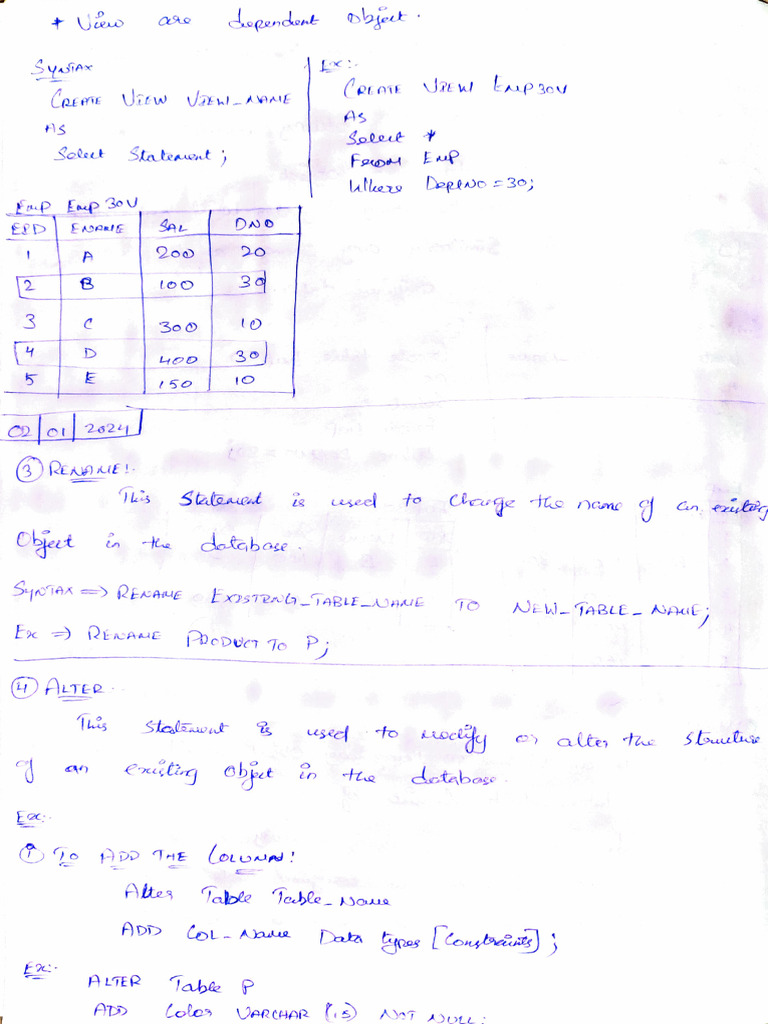 * View are dependent Object.
SYNTAX
CREATE VIEW VIEW_NAME
AS
Select Statement;
Ex:-
CREATE VIEW EMP30V
AS
Select *
From EMP
Where DeptNO = 30;
Emp Emp 30V
EID ENAME SAL DNO
1 A 200 20
2 B 100 30
3 C 300 10
4 D 400 30
5 E 150 10
02 | 01 | 2024
③ RENAME:-
This Statement is used to change the name of an existing
Object in the database.
SYNTAX => RENAME EXISTING_TABLE_NAME TO NEW_TABLE_NAME;
Ex => RENAME PRODUCT TO P;
④ ALTER.
This Statement is used to modify or alter the structure
of an existing Object in the database.
Ex:-
① TO ADD THE COLUMN:
Alter Table Table_Name
ADD COL_Name Data types [Constraints];
Ex:-
ALTER Table P
ADD Color VARCHAR (15) NOT NULL;